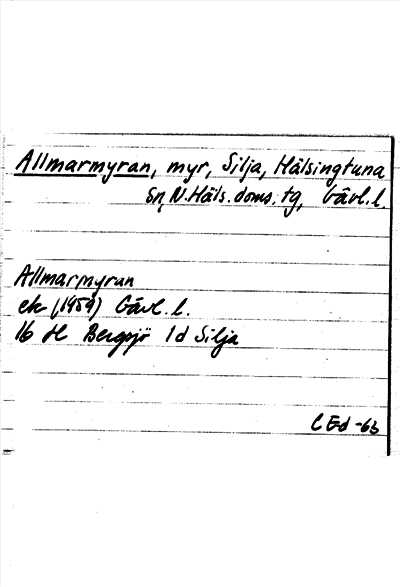 Allmarmyran, myr, Silja, Hälsingtuna
sn, N. Häls. doms. tg, Gävl. l.
Allmarmyran
ek (1959) Gävl. l.
16 H Bergsjö 1d Silja
C Ed -63